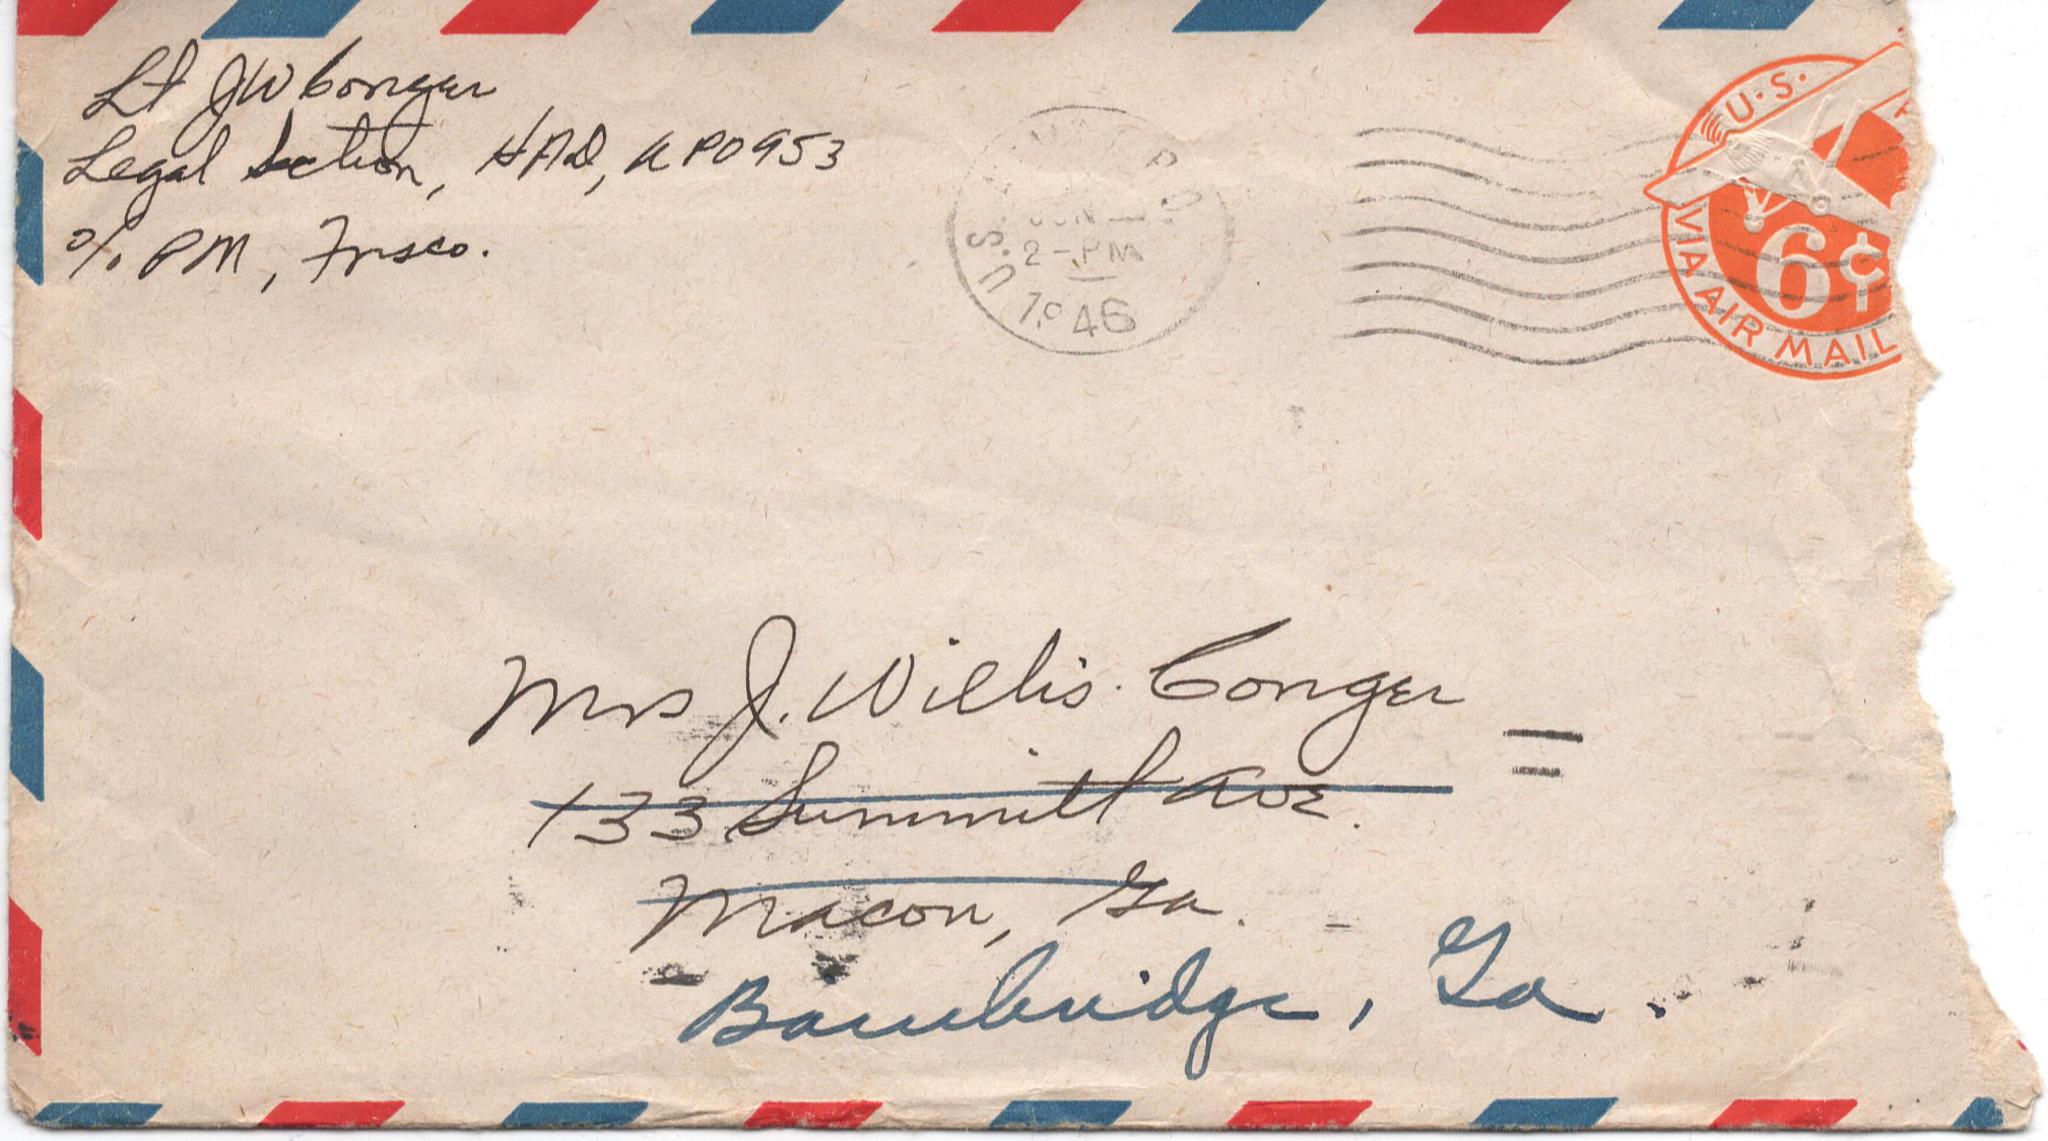 Lt JW Conger
Legal Section, HAD, APO 953
c/o PM, Frisco.
U.S.
JUN
2-PM
1946
U.S.
6¢
VIA AIR MAIL
Mrs J. Willis Conger
133 Summitt Ave.
Macon, Ga.
Bainbridge, Ga.